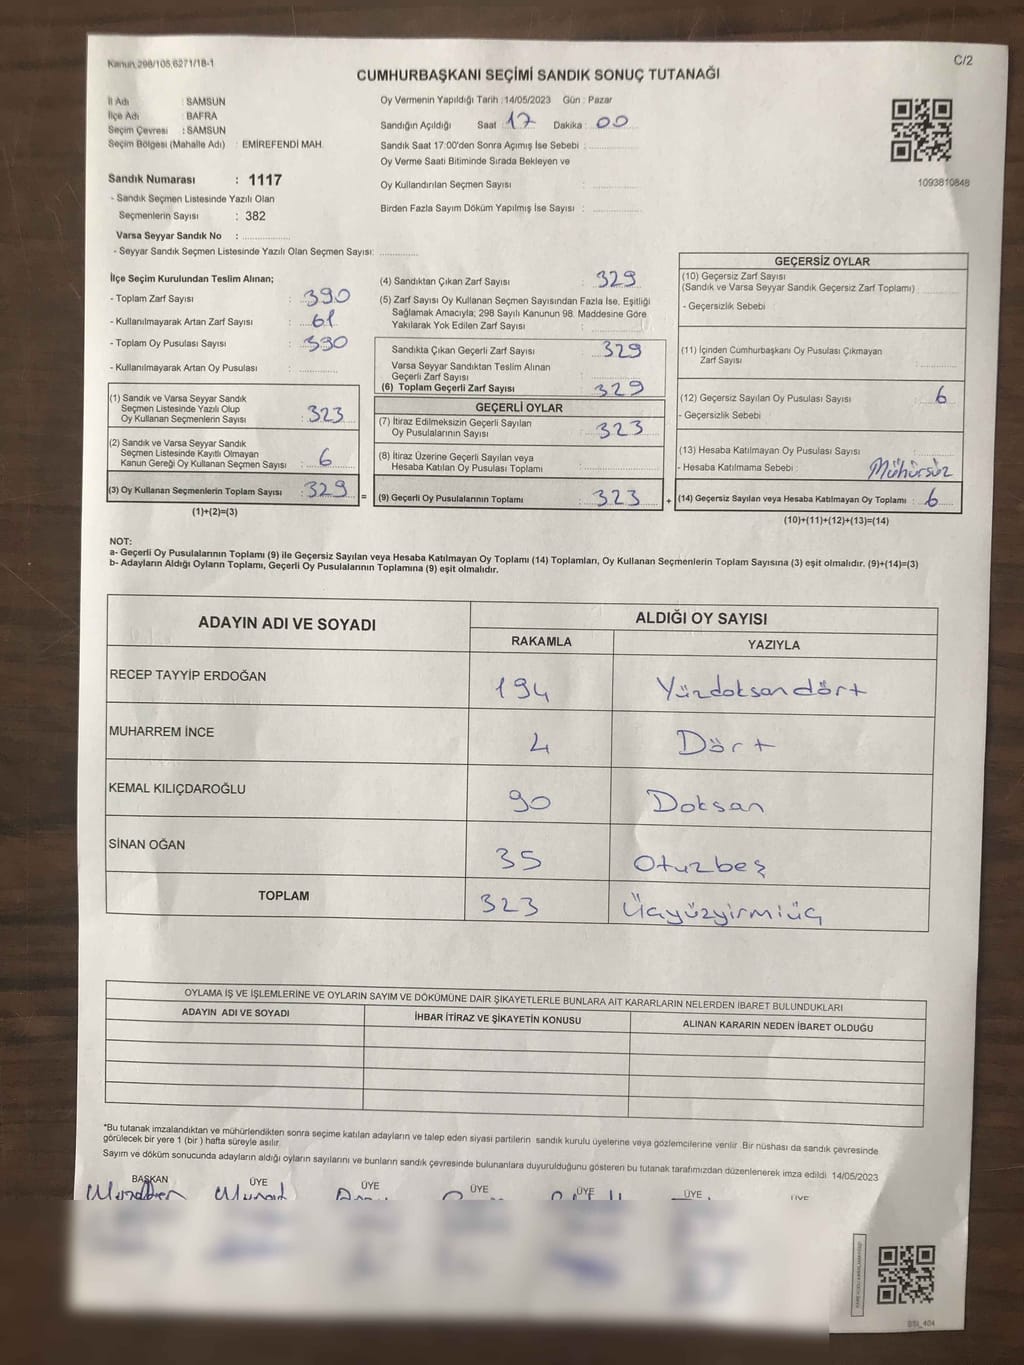 Kanun,298/105,6271/18-1
C/2
CUMHURBAŞKANI SEÇİMİ SANDIK SONUÇ TUTANAĞI
İl Adı : SAMSUN
İlçe Adı : BAFRA
Seçim Çevresi : SAMSUN
Seçim Bölgesi (Mahalle Adı) : EMİREFENDİ MAH.
Oy Vermenin Yapıldığı Tarih : 14/05/2023 Gün : Pazar
Sandığın Açıldığı Saat : 17 Dakika : 00
Sandık Saat 17:00'den Sonra Açımış İse Sebebi :
Oy Verme Saati Bitiminde Sırada Bekleyen ve
Oy Kullandırılan Seçmen Sayısı :
Birden Fazla Sayım Döküm Yapılmış İse Sayısı :
1093810848
Sandık Numarası : 1117
- Sandık Seçmen Listesinde Yazılı Olan
Seçmenlerin Sayısı : 382
Varsa Seyyar Sandık No :
- Seyyar Sandık Seçmen Listesinde Yazılı Olan Seçmen Sayısı:
İlçe Seçim Kurulundan Teslim Alınan;
- Toplam Zarf Sayısı : 390
- Kullanılmayarak Artan Zarf Sayısı : 61
- Toplam Oy Pusulası Sayısı : 390
- Kullanılmayarak Artan Oy Pusulası :
(1) Sandık ve Varsa Seyyar Sandık
Seçmen Listesinde Yazılı Olup
Oy Kullanan Seçmenlerin Sayısı : 323
(2) Sandık ve Varsa Seyyar Sandık
Seçmen Listesinde Kayıtlı Olmayan
Kanun Gereği Oy Kullanan Seçmen Sayısı : 6
(3) Oy Kullanan Seçmenlerin Toplam Sayısı : 329 =
(1)+(2)=(3)
(4) Sandıktan Çıkan Zarf Sayısı : 329
(5) Zarf Sayısı Oy Kullanan Seçmen Sayısından Fazla İse, Eşitliği
Sağlamak Amacıyla; 298 Sayılı Kanunun 98. Maddesine Göre
Yakılarak Yok Edilen Zarf Sayısı :
Sandıkta Çıkan Geçerli Zarf Sayısı : 329
Varsa Seyyar Sandıktan Teslim Alınan
Geçerli Zarf Sayısı :
(6) Toplam Geçerli Zarf Sayısı : 329
GEÇERLİ OYLAR
(7) İtiraz Edilmeksizin Geçerli Sayılan
Oy Pusulalarının Sayısı : 323
(8) İtiraz Üzerine Geçerli Sayılan veya
Hesaba Katılan Oy Pusulası Toplamı :
(9) Geçerli Oy Pusulalarının Toplamı : 323 +
GEÇERSİZ OYLAR
(10) Geçersiz Zarf Sayısı
(Sandık ve Varsa Seyyar Sandık Geçersiz Zarf Toplamı)
- Geçersizlik Sebebi
(11) İçinden Cumhurbaşkanı Oy Pusulası Çıkmayan
Zarf Sayısı :
(12) Geçersiz Sayılan Oy Pusulası Sayısı : 6
- Geçersizlik Sebebi
(13) Hesaba Katılmayan Oy Pusulası Sayısı :
- Hesaba Katılmama Sebebi : Mühürsüz
(14) Geçersiz Sayılan veya Hesaba Katılmayan Oy Toplamı : 6
(10)+(11)+(12)+(13)=(14)
NOT:
a- Geçerli Oy Pusulalarının Toplamı (9) ile Geçersiz Sayılan veya Hesaba Katılmayan Oy Toplamı (14) Toplamları, Oy Kullanan Seçmenlerin Toplam Sayısına (3) eşit olmalıdır. (9)+(14)=(3)
b- Adayların Aldığı Oyların Toplamı, Geçerli Oy Pusulalarının Toplamına (9) eşit olmalıdır.
ADAYIN ADI VE SOYADI
ALDIĞI OY SAYISI
RAKAMLA YAZIYLA
RECEP TAYYİP ERDOĞAN 194 Yüzdoksandört
MUHARREM İNCE 4 Dört
KEMAL KILIÇDAROĞLU 90 Doksan
SİNAN OĞAN 35 Otuzbeş
TOPLAM 323 Üçyüzyirmiüç
OYLAMA İŞ VE İŞLEMLERİNE VE OYLARIN SAYIM VE DÖKÜMÜNE DAİR ŞİKAYETLERLE BUNLARA AİT KARARLARIN NELERDEN İBARET BULUNDUKLARI
ADAYIN ADI VE SOYADI İHBAR İTİRAZ VE ŞİKAYETİN KONUSU ALINAN KARARIN NEDEN İBARET OLDUĞU
*Bu tutanak imzalandıktan ve mühürlendikten sonra seçime katılan adayların ve talep eden siyasi partilerin sandık kurulu üyelerine veya gözlemcilerine verilir. Bir nüshası da sandık çevresinde
görülecek bir yere 1 (bir ) hafta süreyle asılır.
Sayım ve döküm sonucunda adayların aldığı oyların sayılarını ve bunların sandık çevresinde bulunanlara duyurulduğunu gösteren bu tutanak tarafımızdan düzenlenerek imza edildi. 14/05/2023
BAŞKAN ÜYE ÜYE ÜYE ÜYE ÜYE ÜYE